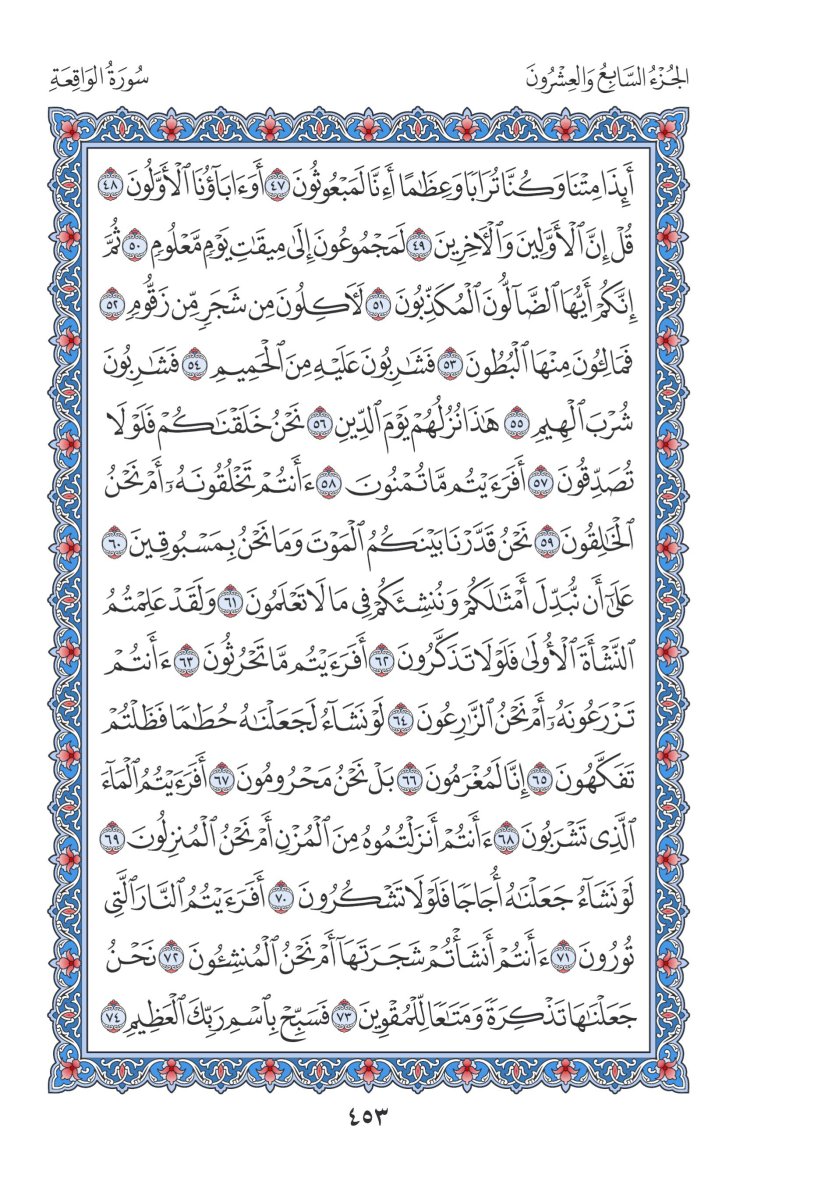 الجُزْءُ السَّابِعُ وَالعِشْرُونَ
سُورَةُ الوَاقِعَةِ
أَئِذَا مِتْنَا وَكُنَّا تُرَابًا وَعِظَٰمًا أَءِنَّا لَمَبْعُوثُونَ ٤٧ أَوَءَابَآؤُنَا ٱلْأَوَّلُونَ ٤٨
قُلْ إِنَّ ٱلْأَوَّلِينَ وَٱلْءَاخِرِينَ ٤٩ لَمَجْمُوعُونَ إِلَىٰ مِيقَٰتِ يَوْمٍ مَّعْلُومٍ ٥٠ ثُمَّ
إِنَّكُمْ أَيُّهَا ٱلضَّآلُّونَ ٱلْمُكَذِّبُونَ ٥١ لَءَاكِلُونَ مِن شَجَرٍ مِّن زَقُّومٍ ٥٢
فَمَالِـُٔونَ مِنْهَا ٱلْبُطُونَ ٥٣ فَشَٰرِبُونَ عَلَيْهِ مِنَ ٱلْحَمِيمِ ٥٤ فَشَٰرِبُونَ
شُرْبَ ٱلْهِيمِ ٥٥ هَٰذَا نُزُلُهُمْ يَوْمَ ٱلدِّينِ ٥٦ نَحْنُ خَلَقْنَٰكُمْ فَلَوْلَا
تُصَدِّقُونَ ٥٧ أَفَرَءَيْتُم مَّا تُمْنُونَ ٥٨ ءَأَنتُمْ تَخْلُقُونَهُۥٓ أَمْ نَحْنُ
ٱلْخَٰلِقُونَ ٥٩ نَحْنُ قَدَّرْنَا بَيْنَكُمُ ٱلْمَوْتَ وَمَا نَحْنُ بِمَسْبُوقِينَ ٦٠
عَلَىٰٓ أَن نُّبَدِّلَ أَمْثَٰلَكُمْ وَنُنشِئَكُمْ فِى مَا لَا تَعْلَمُونَ ٦١ وَلَقَدْ عَلِمْتُمُ
ٱلنَّشْأَةَ ٱلْأُولَىٰ فَلَوْلَا تَذَكَّرُونَ ٦٢ أَفَرَءَيْتُم مَّا تَحْرُثُونَ ٦٣ ءَأَنتُمْ
تَزْرَعُونَهُۥٓ أَمْ نَحْنُ ٱلزَّٰرِعُونَ ٦٤ لَوْ نَشَآءُ لَجَعَلْنَٰهُ حُطَٰمًا فَظَلْتُمْ
تَفَكَّهُونَ ٦٥ إِنَّا لَمُغْرَمُونَ ٦٦ بَلْ نَحْنُ مَحْرُومُونَ ٦٧ أَفَرَءَيْتُمُ ٱلْمَآءَ
ٱلَّذِى تَشْرَبُونَ ٦٨ ءَأَنتُمْ أَنزَلْتُمُوهُ مِنَ ٱلْمُزْنِ أَمْ نَحْنُ ٱلْمُنزِلُونَ ٦٩
لَوْ نَشَآءُ جَعَلْنَٰهُ أُجَاجًا فَلَوْلَا تَشْكُرُونَ ٧٠ أَفَرَءَيْتُمُ ٱلنَّارَ ٱلَّتِى
تُورُونَ ٧١ ءَأَنتُمْ أَنشَأْتُمْ شَجَرَتَهَآ أَمْ نَحْنُ ٱلْمُنشِـُٔونَ ٧٢ نَحْنُ
جَعَلْنَٰهَا تَذْكِرَةً وَمَتَٰعًا لِّلْمُقْوِينَ ٧٣ فَسَبِّحْ بِٱسْمِ رَبِّكَ ٱلْعَظِيمِ ٧٤
٤٥٣